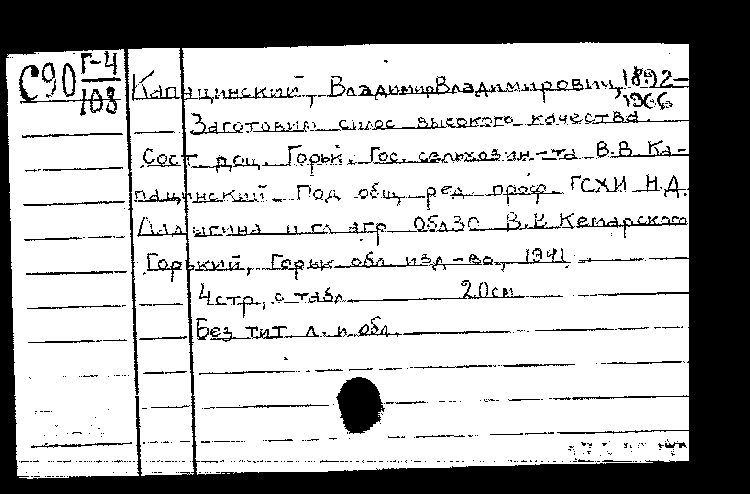 С90 Г-4/108
Капацинский, Владимир Владимирович, 1892-1966
Заготовим силос высокого качества.
Сост. доц. Горьк. Гос. сельхозин-та В.В. Ка-
пацинский. Под общ. ред. проф. ГСХИ Н.Д.
и гл. агр. ОблЗО В.К. Кемарского
Горький, Горьк. обл. изд-во, 1941.
4 стр., с табл. 20 см
Без тит. л. и обл.